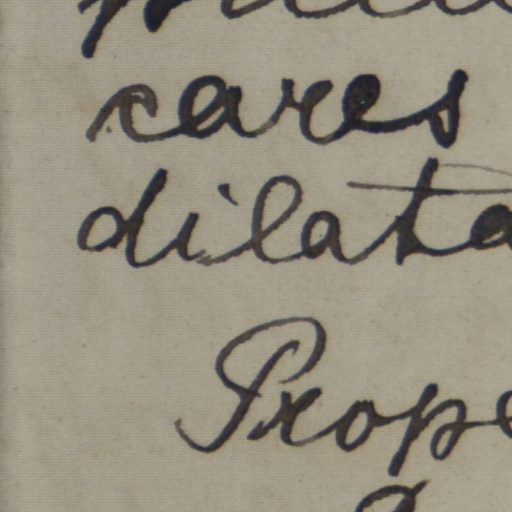 cares
dilata
Prope